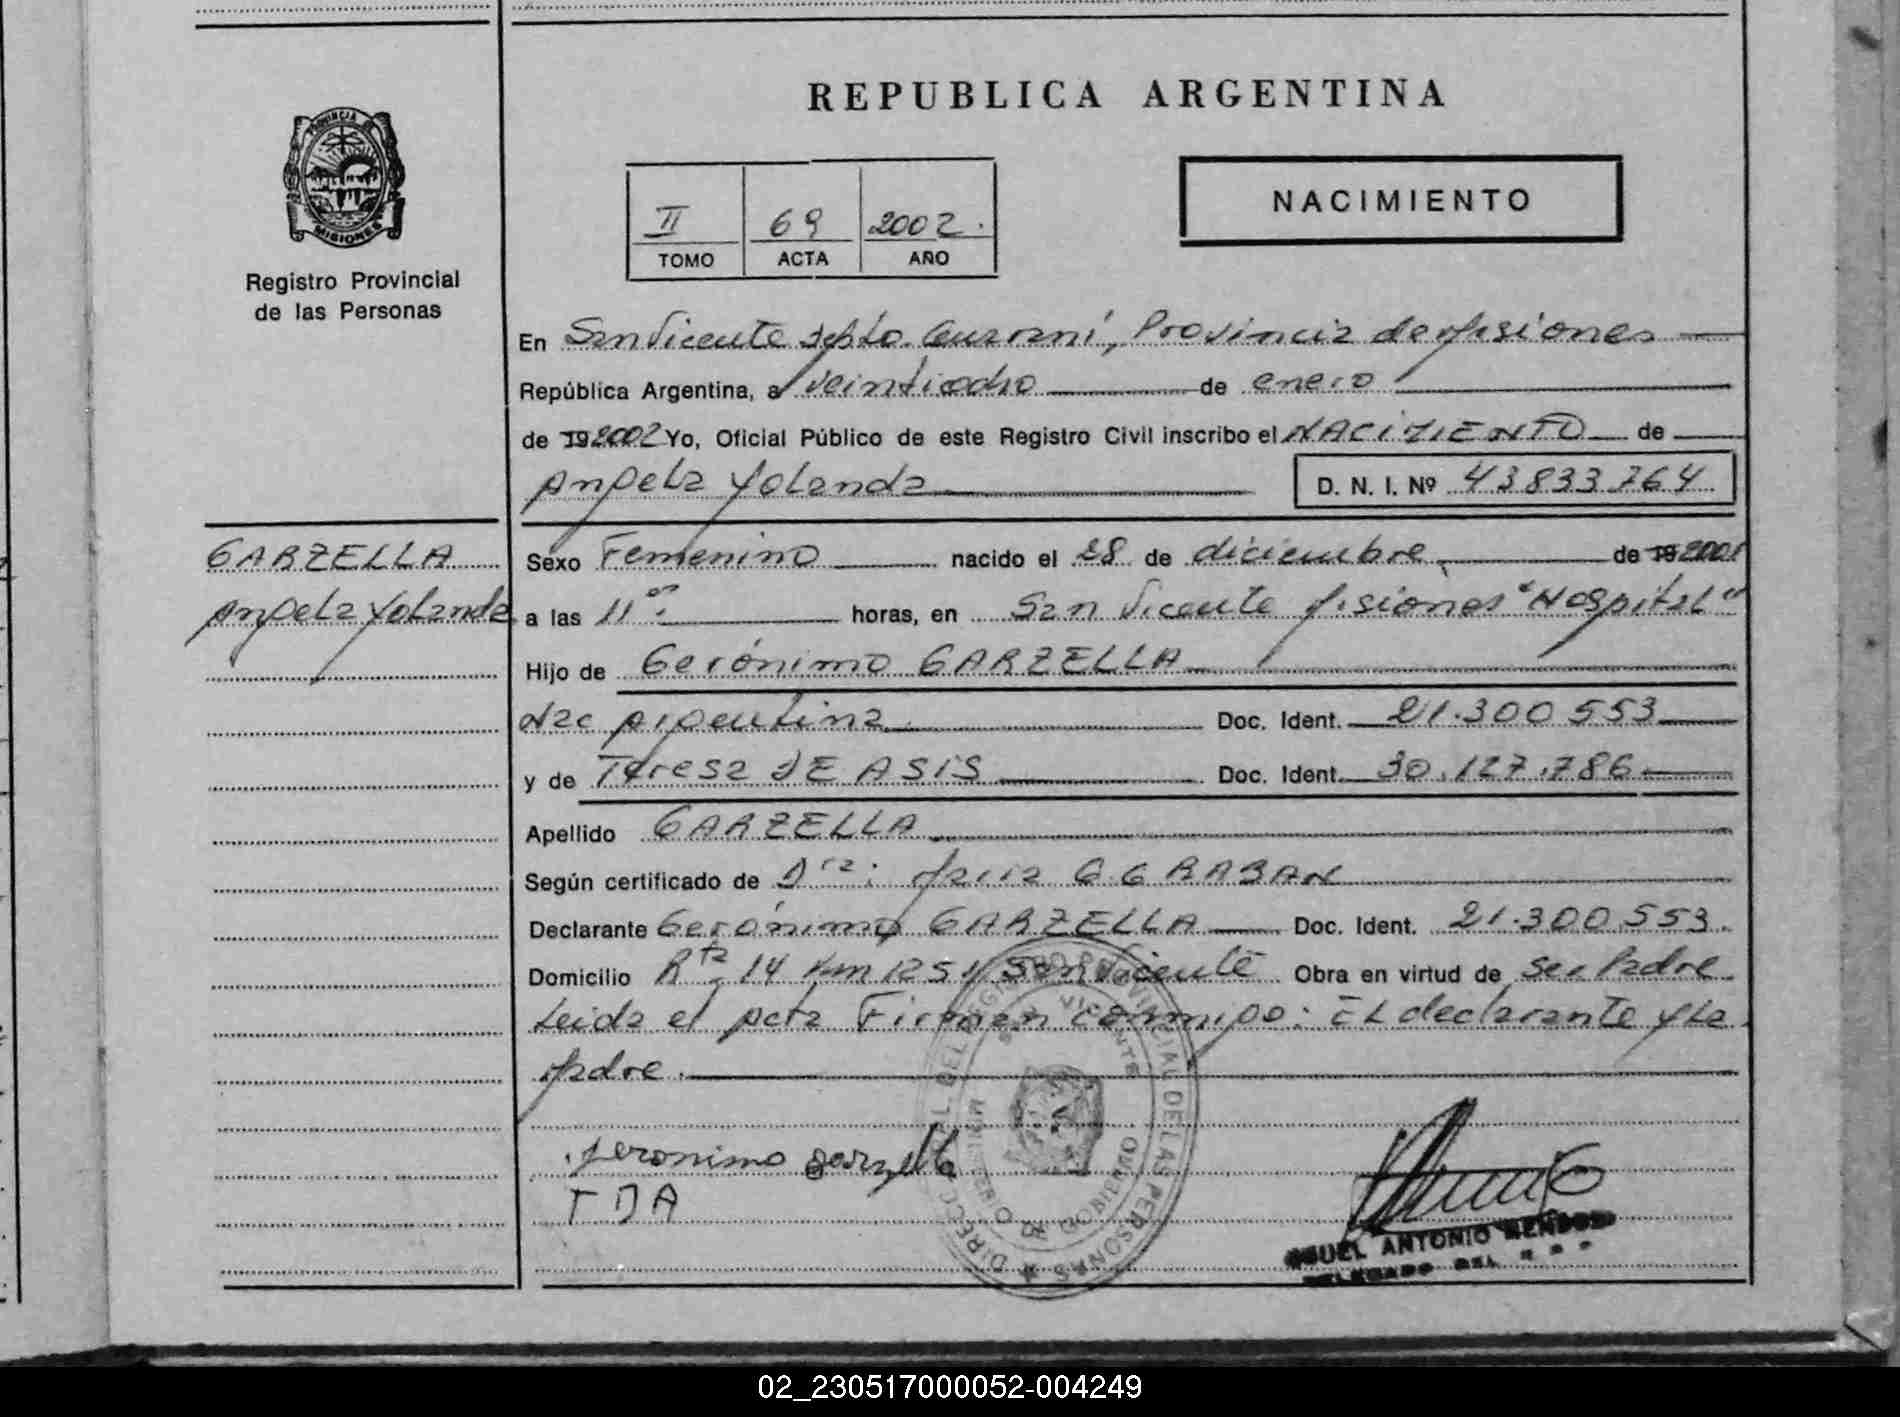 REPUBLICA ARGENTINA
PROVINCIA DE
MISIONES
Registro Provincial
de las Personas
II 69 2002.
TOMO ACTA AÑO
NACIMIENTO
En San Vicente Dpto. Guaraní, Provincia de Misiones
República Argentina, a veintiocho de enero
de 19 2002 Yo, Oficial Público de este Registro Civil inscribo el NACIMIENTO de
Angela Yolanda D. N. I. Nº 43833764
GARZELLA
Angela Yolanda
Sexo Femenino nacido el 28 de diciembre de 19 2001
a las 11 horas, en San Vicente Misiones "Hospital"
Hijo de Gerónimo GARZELLA
Nac Argentina Doc. Ident. 21.300 553
y de Teresa DE ASIS Doc. Ident. 30.127.786
Apellido GARZELLA
Según certificado de Dra: María G
Declarante Gerónimo GARZELLA Doc. Ident. 21.300.553.
Domicilio Rta 14 Km 1251 San Vicente Obra en virtud de ser Padre
Leida el acta Firman conmigo: El declarante y la
Madre.
geronimo garzella
T D A
DIRECC. GRAL. DEL REGISTRO PROVINCIAL DE LAS PERSONAS
SAN VICENTE
MINISTERIO DE GOBIERNO
ANTONIO
DELEGADO DEL
02_230517000052-004249